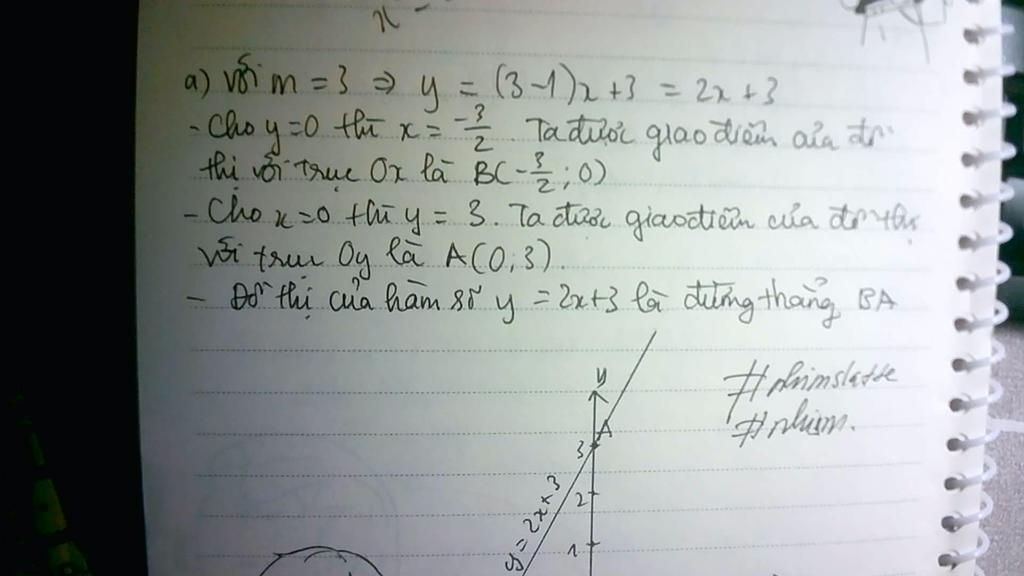 x -
a) với m = 3 ⇒ y = (3-1)x+3 = 2x+3
- Cho y=0 thì x = -3/2. Ta được giao điểm của đồ
thị với trục Ox là B(-3/2; 0)
- Cho x=0 thì y = 3. Ta được giao điểm của đồ thị
với trục Oy là A(0; 3).
- Đồ thị của hàm số y = 2x+3 là đường thẳng BA
y
A
3
2
1
y = 2x+3